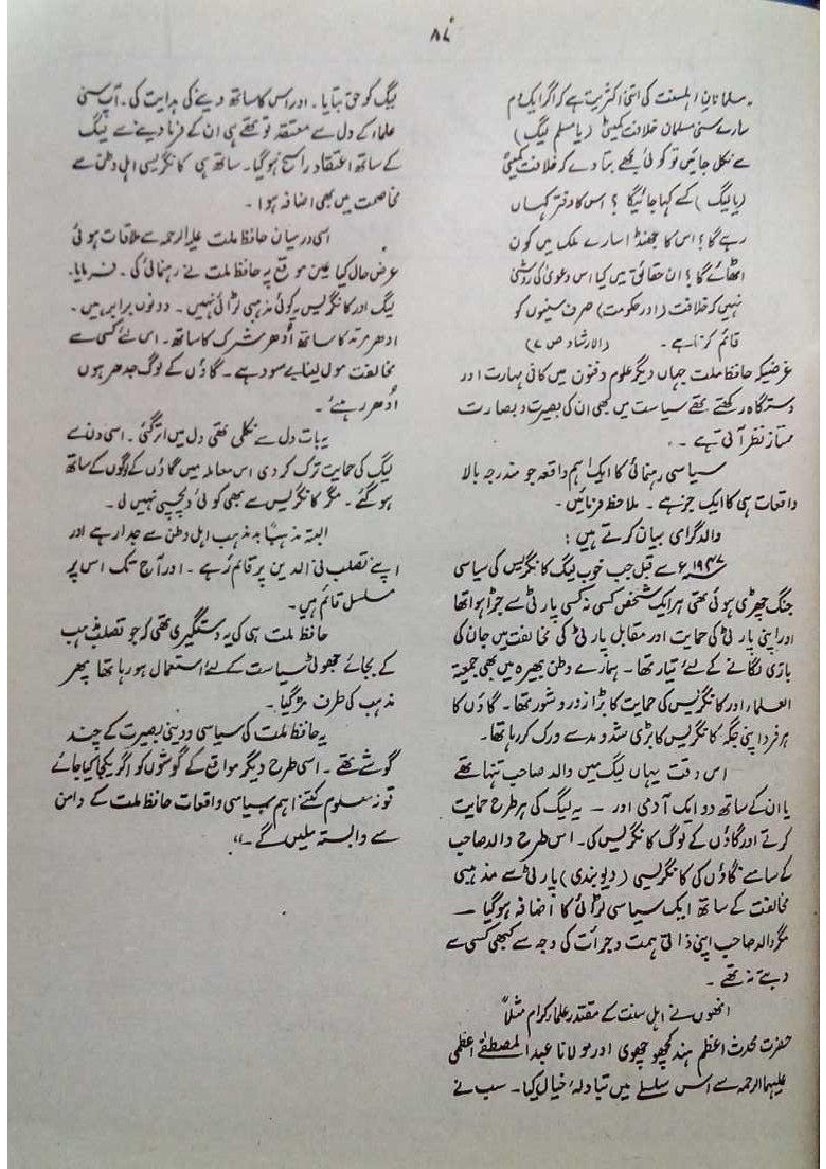 ۸۴
مسلمانانِ اہلسنت کی اتنی اکثریت ہے کہ اگر ایک دم
سارے سنی مسلمان خلافت کمیٹی (یا مسلم لیگ)
سے نکل جائیں تو کوئی مجھے بتا دے کہ خلافت کمیٹی
(یا لیگ) کسے کہا جائیگا؟ اس کا دفتر کہاں
رہے گا؟ اس کا جھنڈا سارے ملک میں کون
اٹھائے گا؟ ان حقائق میں کیا اس دعویٰ کی روشنی
نہیں کہ خلافت (اور حکومت) صرف سنیوں کو
قائم کرنا ہے۔ (الارشاد ص ۷)
غرضیکہ حافظ ملت جہاں دیگر علوم و فنون میں کافی مہارت اور
دستگاہ رکھتے تھے سیاست میں بھی ان کی بصیرت و بصارت
ممتاز نظر آتی ہے۔
سیاسی رہنمائی کا ایک اہم واقعہ جو مندرجہ بالا
واقعات ہی کا ایک جز ہے۔ ملاحظہ فرمائیں۔
والد گرامی بیان کرتے ہیں؛
۱۹۴۷ء سے قبل جب خوب لیگ کانگریس کی سیاسی
جنگ چھڑی ہوئی تھی ہر ایک شخص کسی نہ کسی پارٹی سے جڑا ہوا تھا
اور اپنی پارٹی کی حمایت اور مقابل پارٹی کی مخالفت میں جان کی
بازی لگانے کے لئے تیار تھا۔ ہمارے وطن بھیرہ میں بھی جمعیۃ
العلماء اور کانگریس کی حمایت کا بڑا زور و شور تھا۔ گاؤں کا
ہر فرد اپنی جگہ کانگریس کا بڑی شد و مد سے ورک کر رہا تھا۔
اس وقت یہاں لیگ میں والد صاحب تنہا تھے
یا ان کے ساتھ دو ایک آدمی اور — یہ لیگ کی ہر طرح حمایت
کرتے اور گاؤں کے لوگ کانگریس کی۔ اس طرح والد صاحب
کے سامنے گاؤں کی کانگریسی (دیوبندی) پارٹی سے مذہبی
مخالفت کے ساتھ ایک سیاسی لڑائی کا اضافہ ہو گیا —
مگر والد صاحب اپنی ذاتی ہمت و جرأت کی وجہ سے کبھی کسی سے
دبتے نہ تھے۔
انھوں نے اہل سنت کے مقتدر علماء کرام مثلاً
حضرت محدث اعظم ہند کچھوچھوی اور مولانا عبد المصطفےٰ اعظمی
علیہما الرحمہ سے اس سلسلے میں تبادلۂ خیال کیا۔ سب نے
لیگ کو حق بتایا۔ اور اس کا ساتھ دینے کی ہدایت کی۔ آپ سنی
علماء کے دل سے معتقد تو تھے ہی ان کے فرما دینے سے لیگ
کے ساتھ اعتقاد راسخ ہو گیا۔ ساتھ ہی کانگریسی اہل وطن سے
مخاصمت میں بھی اضافہ ہوا۔
اسی درمیان حافظ ملت علیہ الرحمہ سے ملاقات ہوئی
عرض حال کیا عین موقع پر حافظ ملت نے رہنمائی کی۔ فرمایا۔
لیگ اور کانگریس یہ کوئی مذہبی لڑائی نہیں۔ دونوں برابر ہیں۔
ادھر مرتد کا ساتھ اُدھر مشرک کا ساتھ۔ اس لئے کسی سے
مخالفت مول لینا بے سود ہے۔ گاؤں کے لوگ جدھر ہوں
اُدھر رہئے۔
یہ بات دل سے نکلی تھی دل میں اتر گئی۔ اسی دن سے
لیگ کی حمایت ترک کر دی اس معاملہ میں گاؤں کے لوگوں کے ساتھ
ہو گئے۔ مگر کانگریس سے بھی کوئی دلچسپی نہیں لی۔
البتہ مذہباً بد مذہب اہل وطن سے جدا رہے اور
اپنے تصلب فی الدین پر قائم رہے۔ اور آج تک اس پر
مسلسل قائم ہیں۔
حافظ ملت ہی کی یہ دستگیری تھی کہ جو تصلب مذہب
کے بجائے جھوٹی سیاست کے لئے استعمال ہو رہا تھا پھر
مذہب کی طرف مڑ گیا۔
یہ حافظ ملت کی سیاسی و دینی بصیرت کے چند
گوشے تھے۔ اسی طرح دیگر مواقع کے گوشوں کو اگر یکجا کیا جائے
تو نہ معلوم کتنے اہم سیاسی واقعات حافظ ملت کے دامن
سے وابستہ ملیں گے۔"